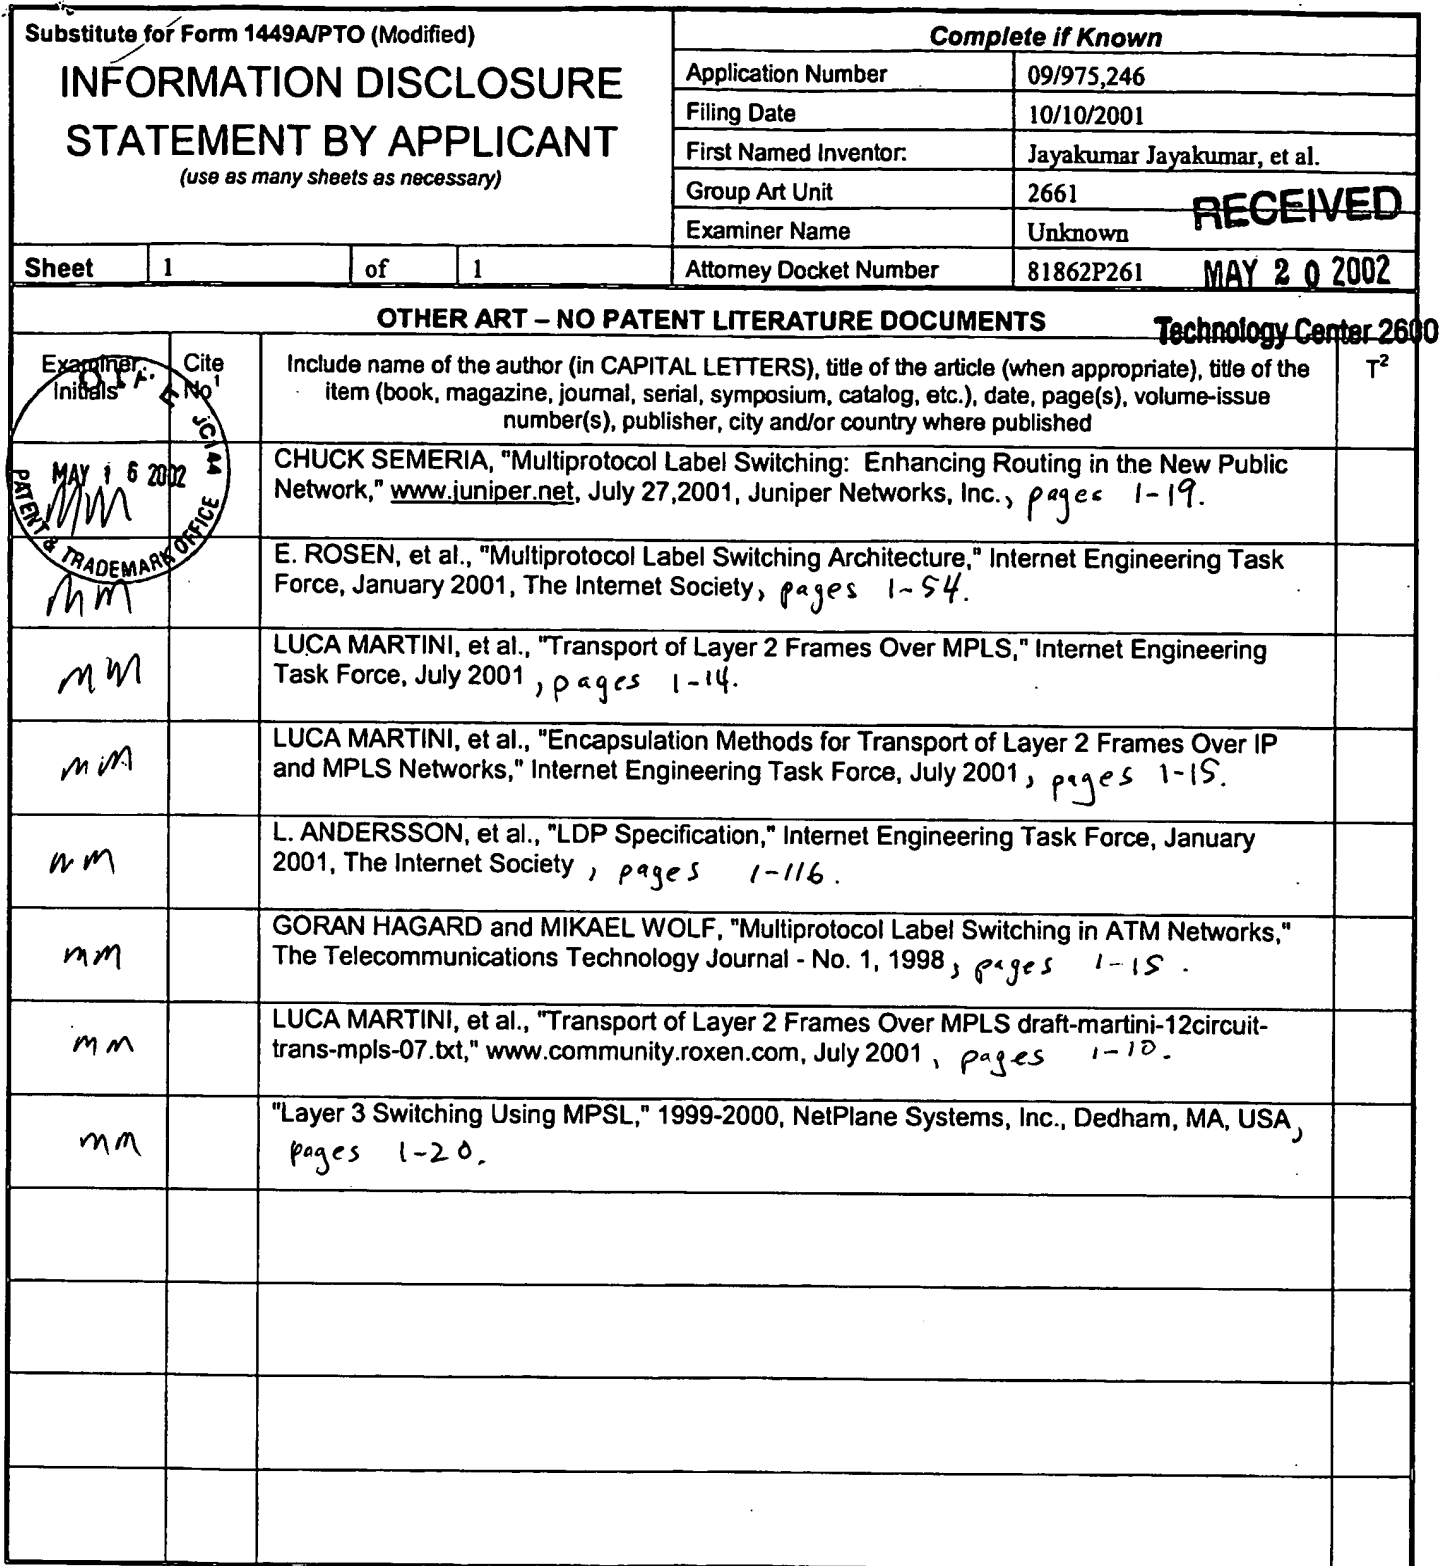 Substitute for Form 1449A/PTO (Modified)
INFORMATION DISCLOSURE
STATEMENT BY APPLICANT
(use as many sheets as necessary)
Sheet 1 of 1
Complete if Known
Application Number 09/975,246
Filing Date 10/10/2001
First Named Inventor: Jayakumar Jayakumar, et al.
Group Art Unit 2661
Examiner Name Unknown
Attorney Docket Number 81862P261
RECEIVED
MAY 20 2002
Technology Center 2600
OTHER ART – NO PATENT LITERATURE DOCUMENTS
Examiner Initials
Cite No1
Include name of the author (in CAPITAL LETTERS), title of the article (when appropriate), title of the
item (book, magazine, journal, serial, symposium, catalog, etc.), date, page(s), volume-issue
number(s), publisher, city and/or country where published
T2
OIPE JC144
MAY 16 2002
PATENT & TRADEMARK OFFICE
MM
CHUCK SEMERIA, "Multiprotocol Label Switching: Enhancing Routing in the New Public
Network," www.juniper.net, July 27,2001, Juniper Networks, Inc., pages 1-19.
MM
E. ROSEN, et al., "Multiprotocol Label Switching Architecture," Internet Engineering Task
Force, January 2001, The Internet Society, pages 1-54.
MM
LUCA MARTINI, et al., "Transport of Layer 2 Frames Over MPLS," Internet Engineering
Task Force, July 2001, pages 1-14.
MM
LUCA MARTINI, et al., "Encapsulation Methods for Transport of Layer 2 Frames Over IP
and MPLS Networks," Internet Engineering Task Force, July 2001, pages 1-15.
MM
L. ANDERSSON, et al., "LDP Specification," Internet Engineering Task Force, January
2001, The Internet Society, pages 1-116.
MM
GORAN HAGARD and MIKAEL WOLF, "Multiprotocol Label Switching in ATM Networks,"
The Telecommunications Technology Journal - No. 1, 1998, pages 1-15.
MM
LUCA MARTINI, et al., "Transport of Layer 2 Frames Over MPLS draft-martini-12circuit-
trans-mpls-07.txt," www.community.roxen.com, July 2001, pages 1-10.
MM
"Layer 3 Switching Using MPSL," 1999-2000, NetPlane Systems, Inc., Dedham, MA, USA,
pages 1-20.